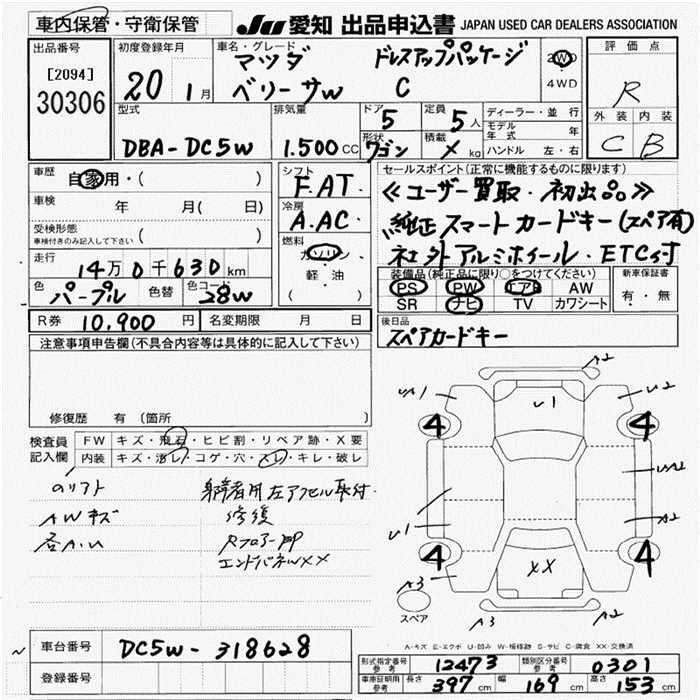 車内保管・守衛保管
JU 愛知 出品申込書 JAPAN USED CAR DEALERS ASSOCIATION
出品番号
[2094]
30306
初度登録年月
20 1月
車名・グレード
マツダ ドレスアップパッケージ
ベリーサw C
2WD
4WD
評価点
R
外装 内装
C B
型式
DBA-DC5W
排気量
1.500 CC
ドア
5
形状
ワゴン
定員
5人
積載
× kg
ディーラー・並行
モデル年式 年
ハンドル 左・右
車歴 自家用・( )
車検 年 月( 日)
受検形態
車検付きのみ記入して下さい ( )
走行 14万0千630km
色 パープル 色替 色コード 28w
シフト
F.AT
冷房
A.AC
燃料
ガソリン
軽・油
( )
セールスポイント(正常に機能するものに限ります)
≪ユーザー買取・初出品≫
純正スマートカードキー(スペア有)
社外アルミホイール・ETC付
装備品(純正品に限り○をつけてください)
PS PW エアB AW
SR ナビ TV カワシート
新車保証書
有・無
R券 10,900円 名変期限 月 日
後日品
スペアカードキー
注意事項申告欄(不具合内容等は具体的に記入して下さい)
修復歴 有(箇所 )
検査員記入欄
FW キズ・飛石・ヒビ割・リペア跡・X要
内装 キズ・汚レ・コゲ・穴・スレ・キレ・破レ
AWキズ
各A.U
左アクセル取付
修復
Rフロアー
エンドパネルXX
A2
U1
U2
4
4
U1
A2
4
4
XX
A3
A3
A2
スペア
A-キズ E-エクボ U-凹み W-補修跡 S-サビ C-腐食 XX-交換済
車台番号 DC5W-318628
登録番号
形式指定番号 参考 12473 類別区分番号 参考 0301
車庫証明用 参考 長さ 397 cm 幅 169 cm 高さ 153 cm